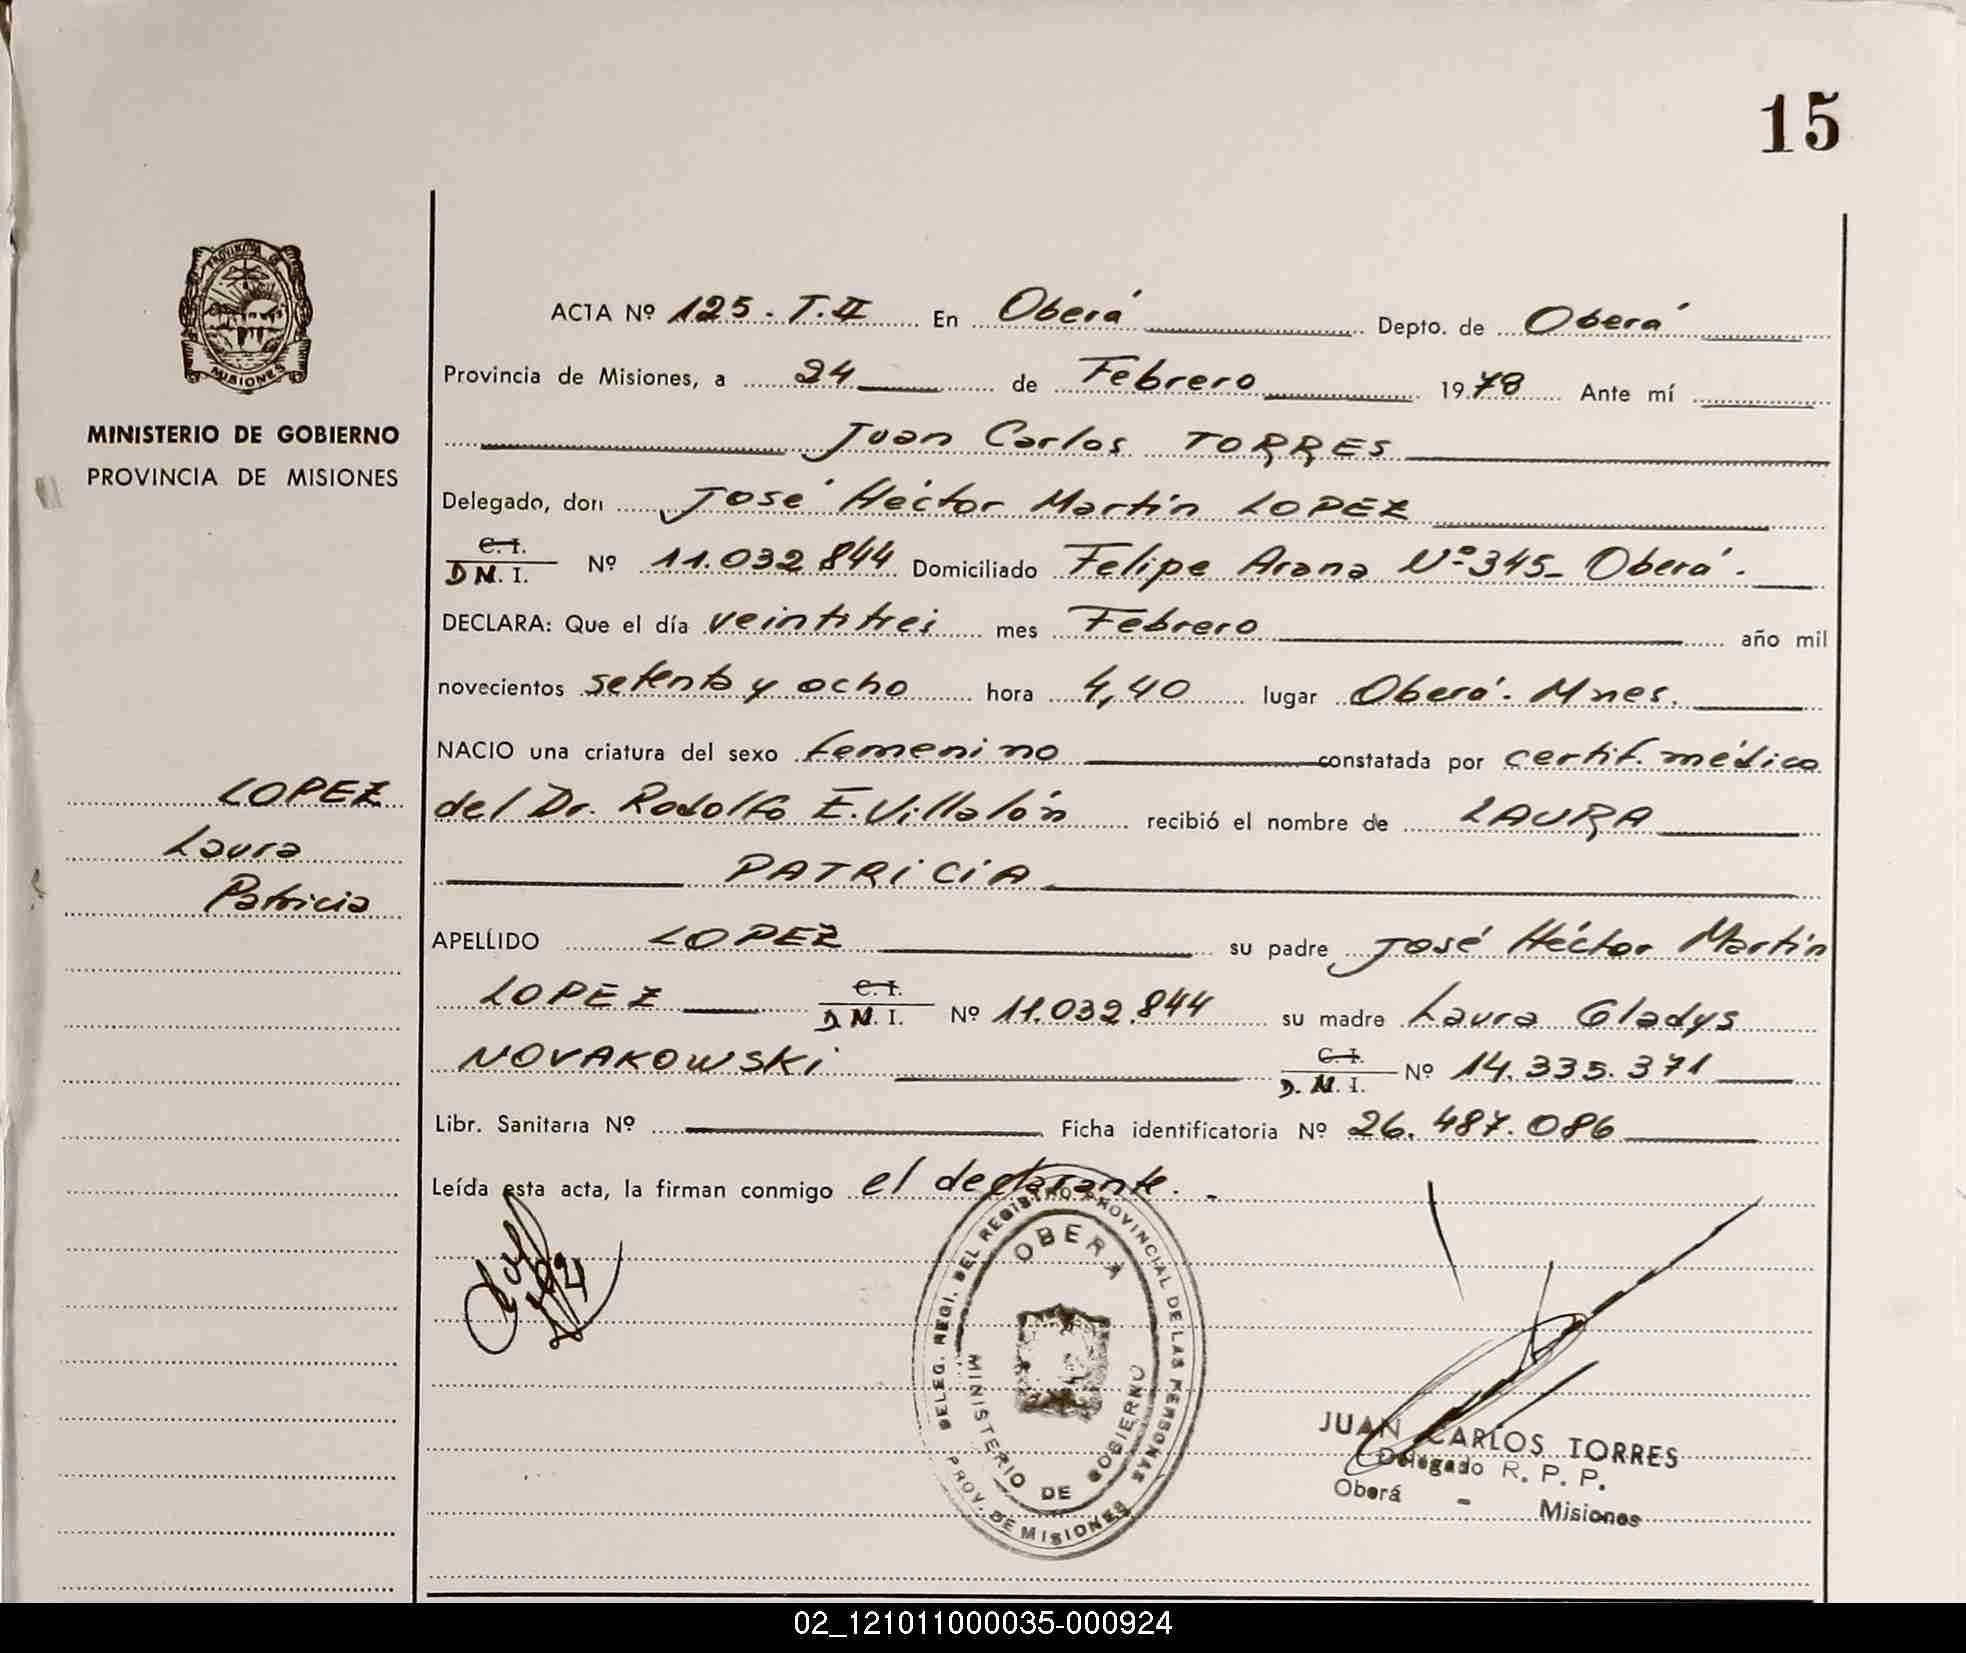 15
PROVINCIA DE
MISIONES
MINISTERIO DE GOBIERNO
PROVINCIA DE MISIONES
LOPEZ
Laura
Patricia
ACTA Nº 125. T.II En Oberá Depto. de Oberá
Provincia de Misiones, a 24 de Febrero 1978 Ante mí
Juan Carlos TORRES
Delegado, don José Héctor Martín LOPEZ
C. I.
D N. I. Nº 11.032.844 Domiciliado Felipe Arana Nº 345- Oberá.
DECLARA: Que el día veintitrei mes Febrero año mil
novecientos setenta y ocho hora 4,40 lugar Oberá. Mnes.
NACIO una criatura del sexo femenino constatada por certif. médico
del Dr. Rodolfo E. Villalón recibió el nombre de LAURA
PATRICIA
APELLIDO LOPEZ su padre José Héctor Martín
LOPEZ C. I. D. N. I. Nº 11.032.844 su madre Laura Gladys
NOVAKOWSKI C. I. D. N. I. Nº 14.335.371
Libr. Sanitaria Nº Ficha identificatoria Nº 26.487.086
Leída esta acta, la firman conmigo el declarante. -
DELEG. REGI. DEL REGISTRO PROVINCIAL DE LAS PERSONAS
OBERA
MINISTERIO DE GOBIERNO
PROV. DE MISIONES
JUAN CARLOS TORRES
Delegado R. P. P.
Oberá - Misiones
02_121011000035-000924